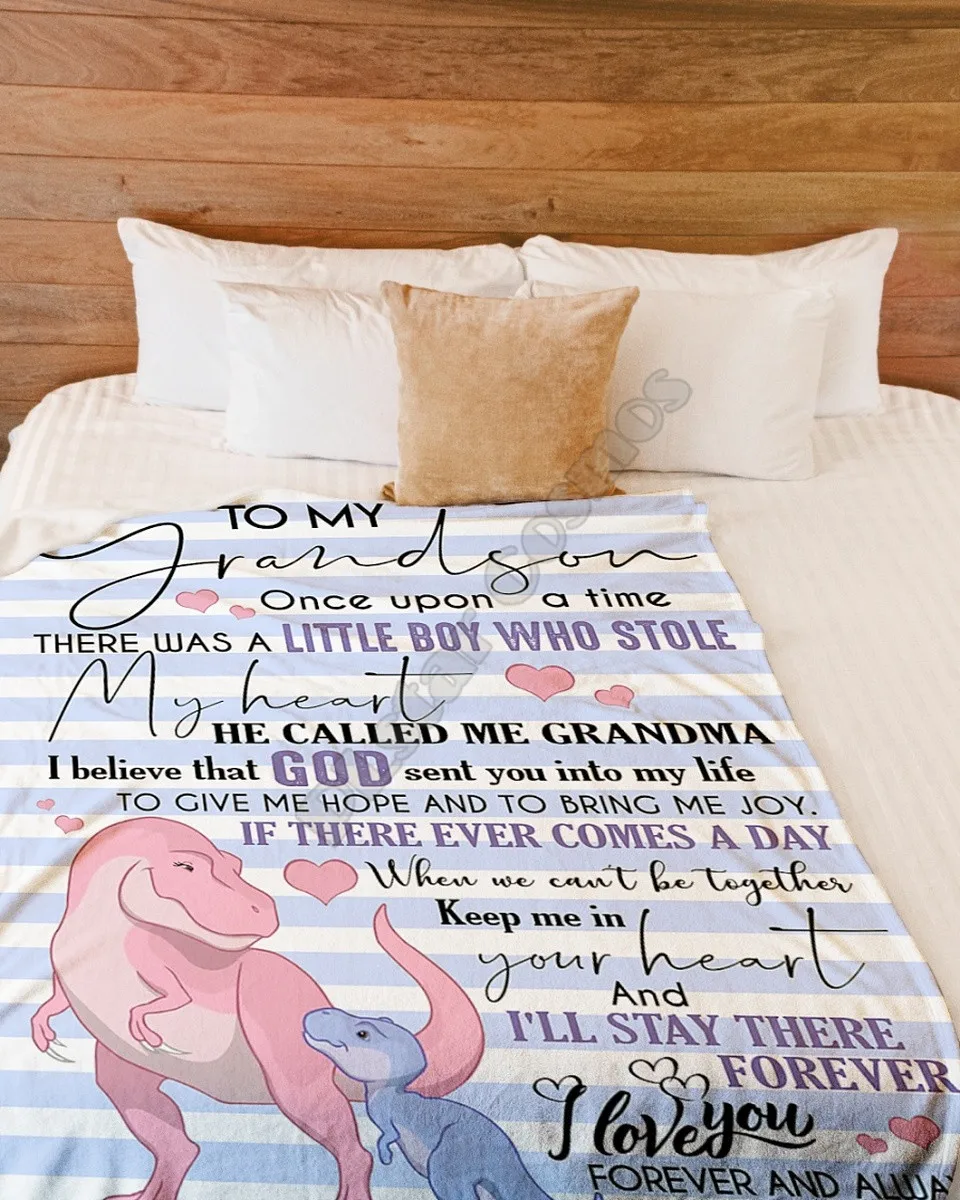 TO MY
Grandson
Once upon a time
THERE WAS A LITTLE BOY WHO STOLE
My heart
HE CALLED ME GRANDMA
I believe that GOD sent you into my life
TO GIVE ME HOPE AND TO BRING ME JOY.
IF THERE EVER COMES A DAY
When we can't be together
Keep me in
your heart
And
I'LL STAY THERE
FOREVER
I love you
FOREVER AND ALWA